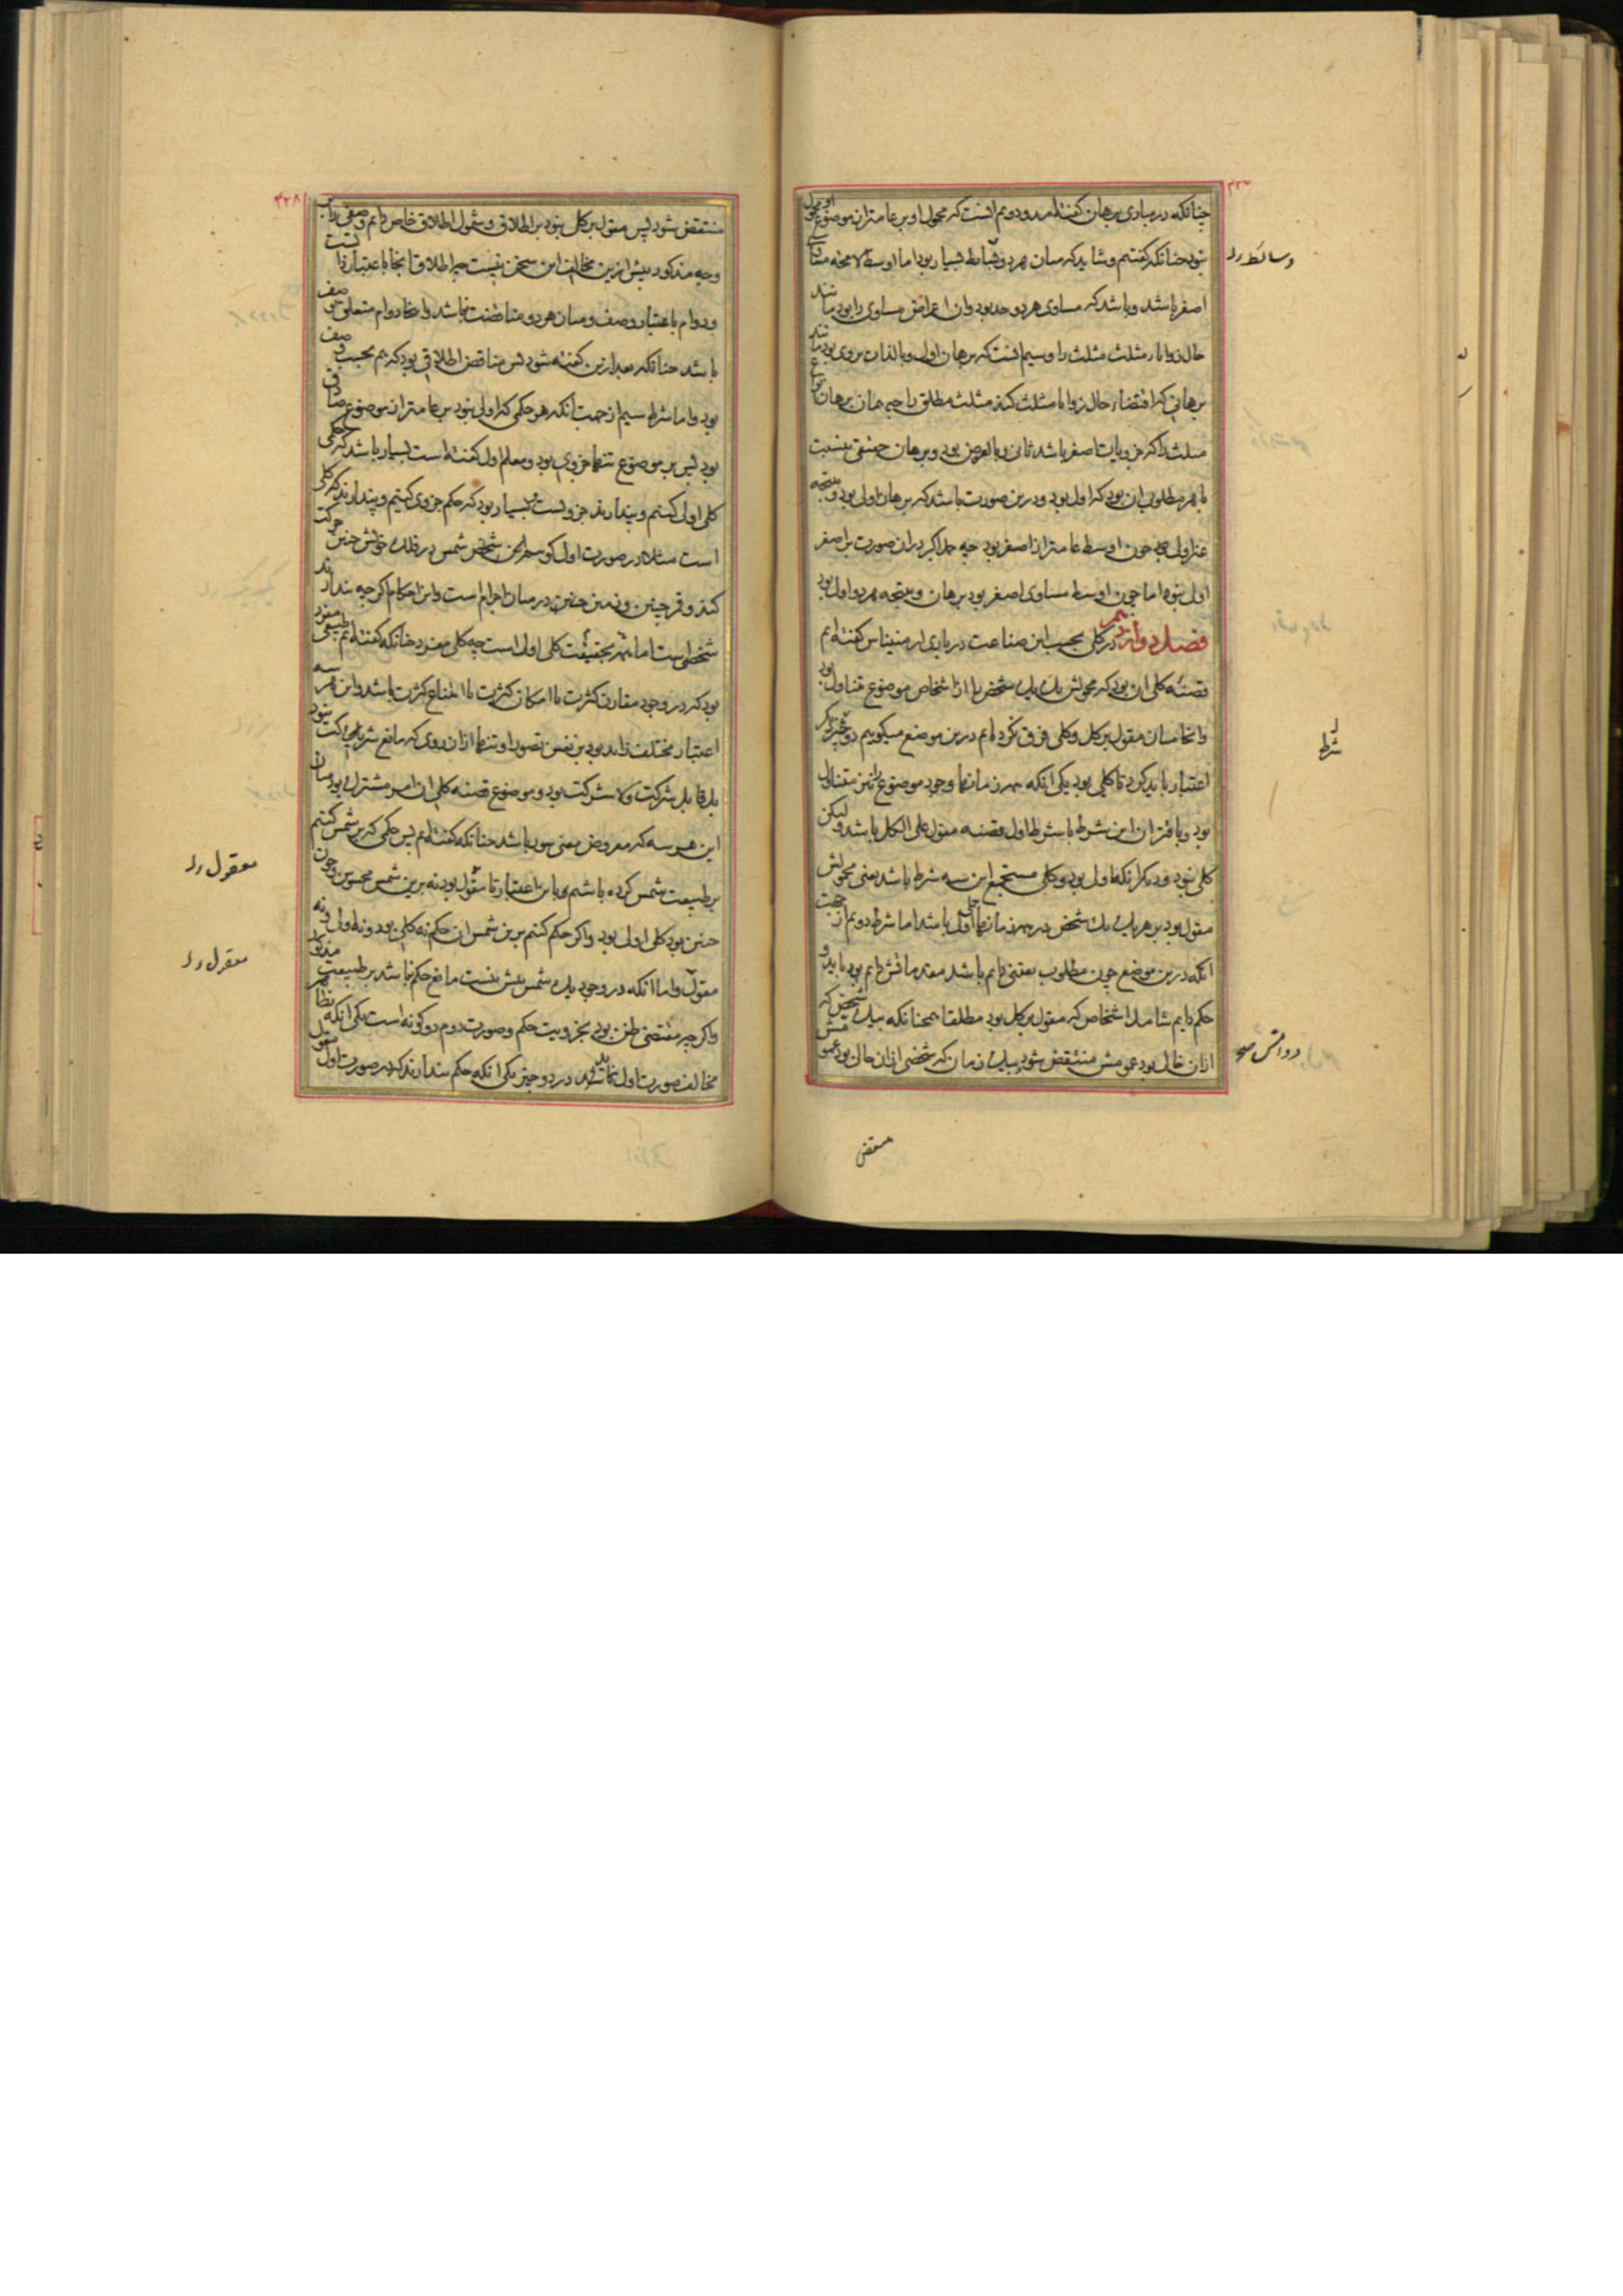 چنانکه در مبادی برهان گفته‌ایم و دویم انست که محمول او بر عامتر از موضوع او محمول
نبود چنانکه گفتیم و شاید که میان هر دو وسایط بسیار بود اما اوسط لا محاله مساوی
اصغر باشد و باشد که مساوی هر دو حد بود و ان اعراض مساوی را بود مانند
حال زوایاء مثلث مثلث را و سیم انست که برهان اول و بالذات بر وی بود مانند
برهانی که اقتضاء حال زوایا مثلث کند مثلث مطلق را چه همان برهان انواع
مثلث را که جزویات اصغر باشد ثانی و بالعرض بود و برهان حقیقی بنسبت
با هر مطلوبی ان بود که اول بود و درین صورت باشد که برهان اول بود و نتیجه
غیر اولی چون اوسط عامتر از اصغر بود چه حد اکبر در ان صورت بر اصغر
اولی نبود اما چون اوسط مساوی اصغر بود برهان و نتیجه هر دو اولی بود
فصل دوازدهم در کلی بحسب این صناعت در باری ارمنیناس گفته‌ایم
قضیه کلی ان بود که محمولش یک یک شخص را از اشخاص موضوع متناول بود
وانجا میان مقول بر کل و کلی فرق نکرده‌ایم درین موضع میگوییم دو چیز دیگر
اعتبار باید کرد تا کلی بود یکی انکه همه زمانهاء وجود موضوع را نیز متناول
بود و باقتران این شرط با شرط اول قضیه مقول علی الکل باشد و لیکن
کلی نبود و دیگر انکه اولی بود و کلی مستجمع این سه شرط باشد یعنی محمولش
مقول بود بر هر یک یک شخص در همه زمانها حمل اول باشد اما شرط دویم از جهت
انکه درین موضع چون مطلوب یقینی دایم باشد مقدماتش دایم بود باید و
حکم دایم شامل اشخاص که مقول بر کل بود مطلقا همچنانکه بیک شخص که
ازان خالی بود عمومش منتقض شود بیک زمان که شخصی ازان خالی بود عمومش
وسائط
شرط
منتقض
۴۲۸
منتقض شود پس مقول بر کل نبود بر اطلاق و شمول اطلاق خاص دایم وصفی را بر
وجه مذکور پیش ازین مخالف این سخن نیست چه اطلاق انجا باعتبار ذاتست
و دوام باعتبار وصف و میان هر دو مناقضت نباشد و اینجا دوام متعلق بوصف
باشد چنانکه بعد ازین گفته شود پس مناقض اطلاقی بود که هم بحسب وصف
بود و اما شرط سیم از جهت انکه هر حکمی که اولی نبود بر عامتر از موضوع صادق
بود پس بر موضوع تنها جزوی بود و معلم اول گفته است بسیار باشد که حکمی
کلی اولی کنیم و پندارند جزویست و بسیار بود که حکم جزوی کنیم و پندارند که کلی
است مثلا در صورت اول گوییم این شخص شمس در فلک خویش چنین حرکت
کند و قمر چنین و زمین چنین در میان اجرام است و این احکام اگر چه پندارند
شخصی است اما بحقیقت کلی اولی است چه کلی مفرد چنانکه گفته‌ایم طبیعتی
بود که در وجود مقارن کثرت یا امکان کثرت یا امتناع کثرت باشد و این هر سه
اعتبار مختلف زاید بود بر نفس تصور او تنها ازان روی که مانع شرکت نبود
بل قابل شرکت و لا شرکت بود و موضوع قضیه کلی ان امر مشترک بود میان
این هر سه که معروض معنی عموم باشد چنانکه گفته‌ایم پس حکمی که بر شمس کنیم
بر طبیعت شمس کرده باشیم و باین اعتبار تا مقول بود نه برین شمس محسوس و چون
چنین بود کلی اولی بود و اگر حکم کنیم برین شمس ان حکم نه کلی بود و نه اولی و نه
مقول و اما انکه در وجود یک شمس بیش نیست مانع حکم نباشد بر طبیعت مذکور
و اگر چه مقتضی ظن بود بجزویت حکم و صورت دوم دو گونه است یکی انکه
مخالف صورت اول باشد در دو چیز یکی انکه حکم پندارند که در صورت اول مقول
معقول
معقول